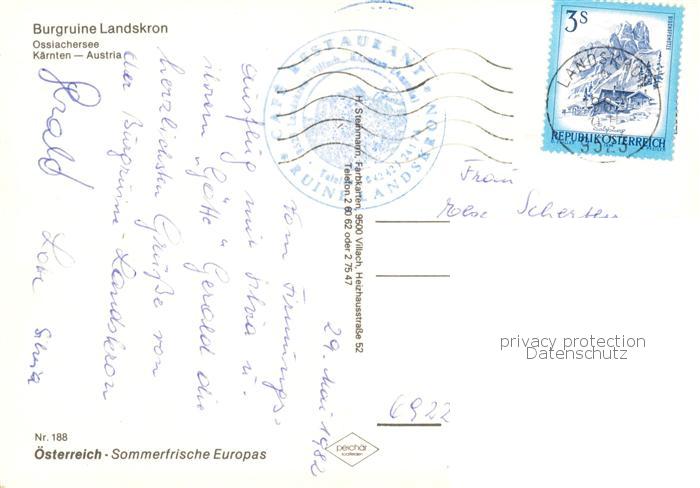 Burgruine Landskron
Ossiachersee
Kärnten — Austria
29. Mai 1982
Vom Firmungs-
ausflug mit Silvia u.
ihrem "Götte" Gerald die
herzlichsten Grüße von
der Burgruine - Landskron
Gerald
Silvia
Nr. 188
Österreich - Sommerfrische Europas
H. Steinmann, Farbkarten, 9500 Villach, Heizhausstraße 52
Telefon 2 60 62 oder 2 75 47
perchar
CAFE RESTAURANT
BURGRUINE LANDSKRON
3 S
REPUBLIK ÖSTERREICH
LANDSKRON
9523
Frau
Scherten
6922
privacy protection
Datenschutz